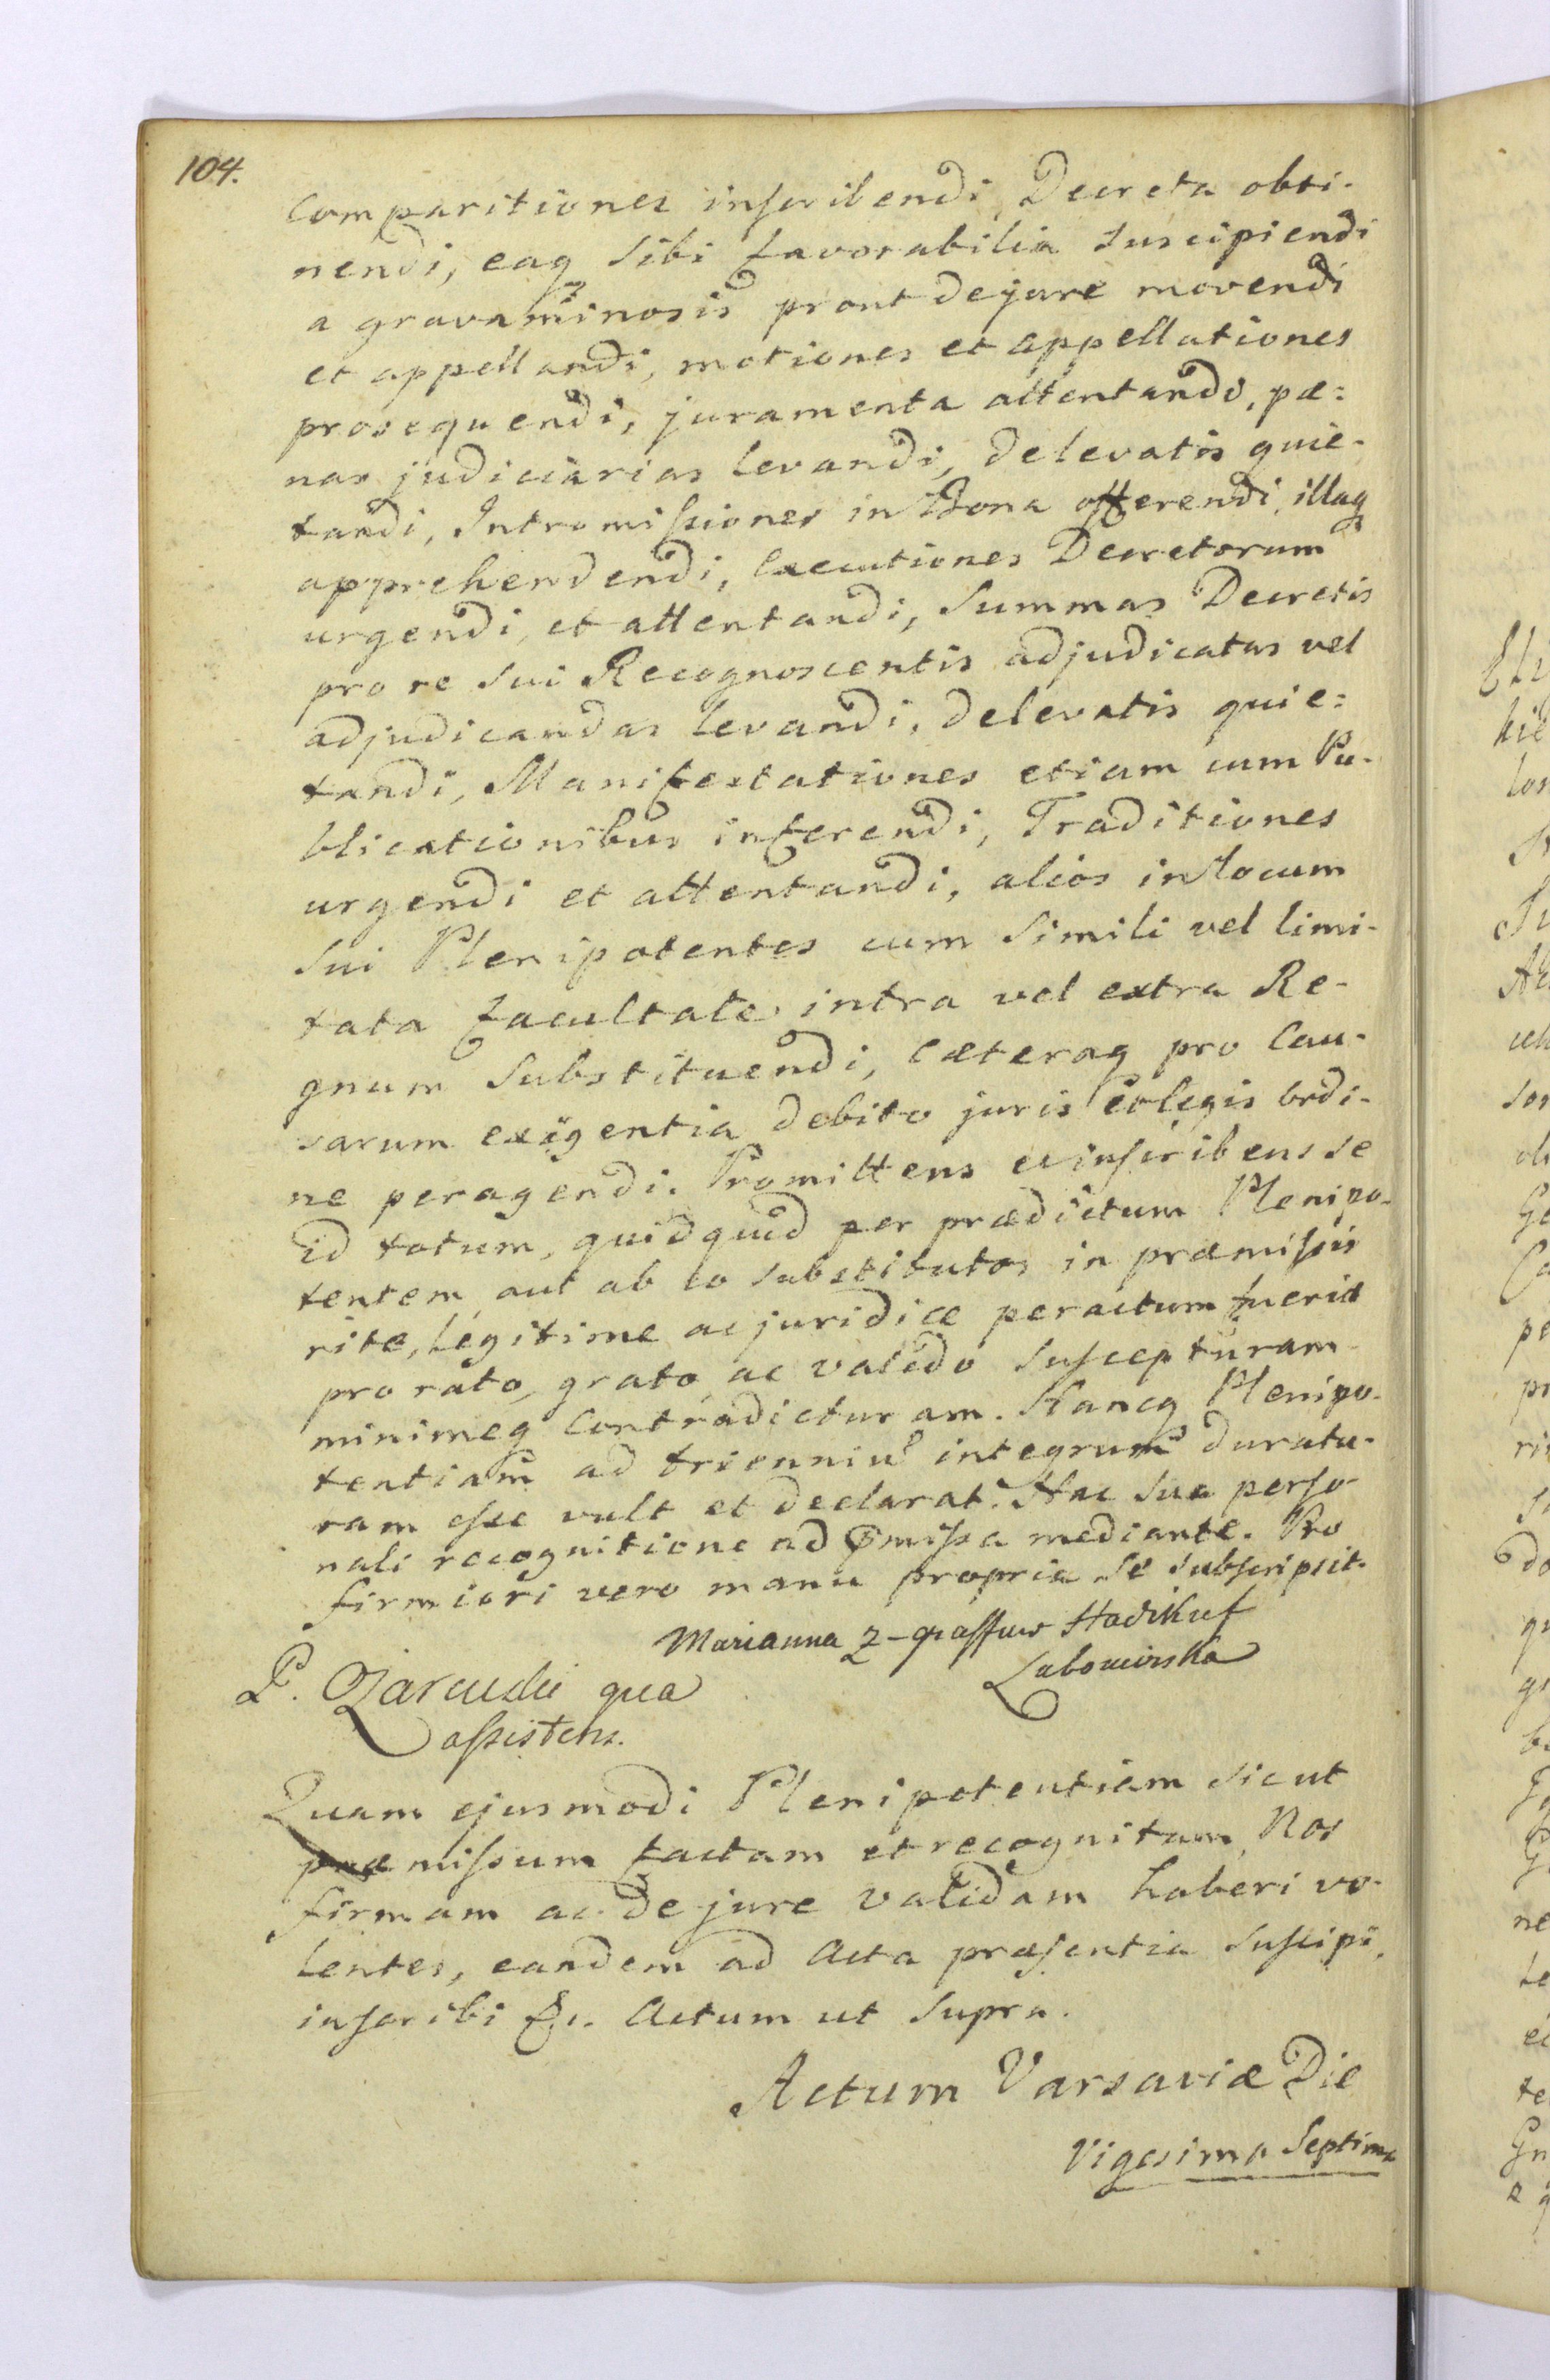 104.
Comparitiones inscribendi, Decreta obti-
nendi, eaq sibi favorabilia suscipiendi
a gravaminosis prout de jure movendi
et appellandi, motiones et appellationes
prosequendi, juramenta attentandi, pæ=
nas judiciarias levandi, de levatis quie-
tandi, Intromissiones in Bona offerendi, illaq
apprehendendi, Executiones Decretorum
urgendi, et attentandi, Summas Decretis
pro re sui Recognoscentis adjudicatas vel
adjudicandas levandi, de levatis quie=
tandi, Manifestationes etiam cum Pu-
blicationibus inferendi, Traditiones
urgendi et attentandi, alios in locum
sui Plenipotentes cum simili vel limi-
tata facultate intra vel extra Re-
gnum substituendi, Cæteraq pro Cau-
sarum exigentia debito juris et legis ordi-
ne peragendi. Promittens et inscribens se
id totum, quidquid per prædictum Plenipo-
tentem, aut ab eo substitutos in præmissis
rite, legitime ac juridice peractum fuerit
pro rato, grato, ac valido suscepturam
minimeq Contradicturam. Hancq Plenipo-
tentiam ad trienniu integrum duratu-
ram esse vult et declarat. Hac sua perso-
nali recognitione ad pmissa mediante. Pro
firmiori vero manu propria se subscripsit.
Marianna z
Lubomirska
P. qua
assistens.
Quam ejusmodi Plenipotentiam sicut
præmissum factam et recognitam, Nos
firmam ac de jure validam haberi vo-
lentes, eandem ad Acta præsentia suscipi,
inscribi &c. Actum ut supra.
Actum Varsaviæ Die
Vigesima Septima